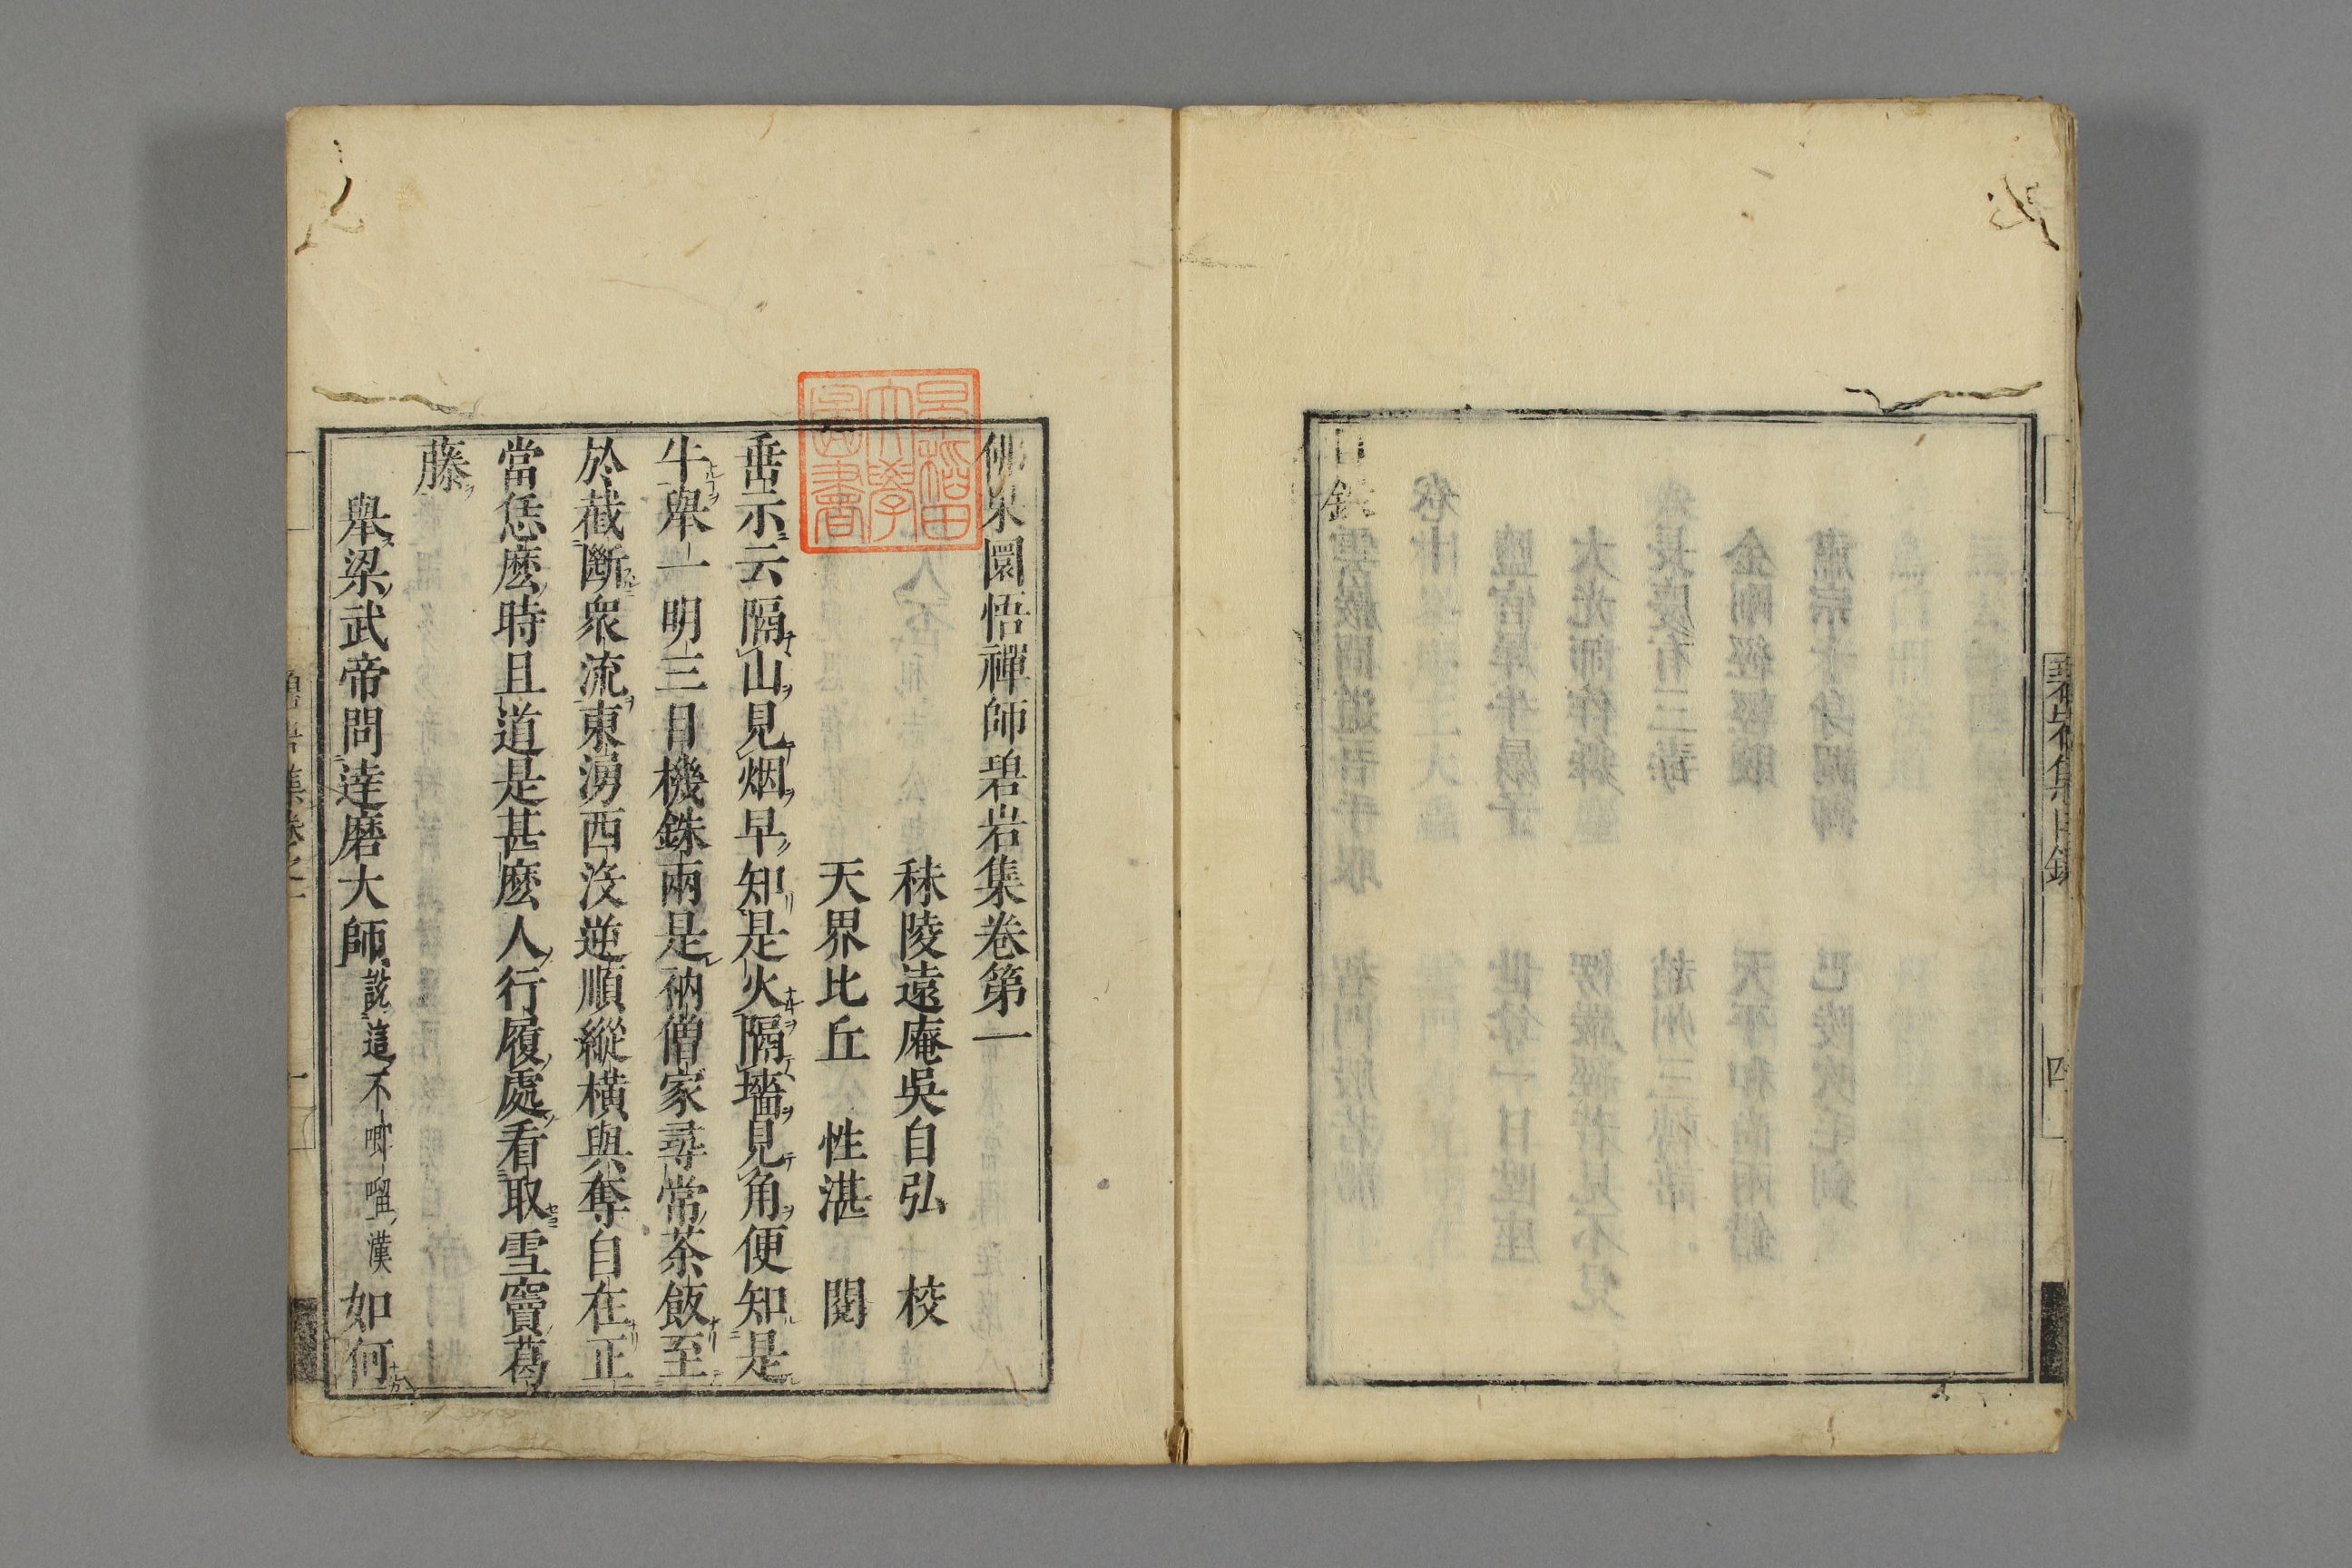 目錄
佛果圜悟禪師碧岩集卷第一
秣陵遠庵吳自弘 校
天界比丘 性湛 閱
垂示云隔山見烟早知是火隔墻見角便知是
牛舉一明三目機銖兩是衲僧家尋常茶飯至
於截斷衆流東湧西沒逆順縱橫與奪自在正
當恁麽時且道是甚麽人行履處看取雪竇葛
藤
舉梁武帝問達磨大師說這不唧𠺕漢如何
早稻田大學圖書
四